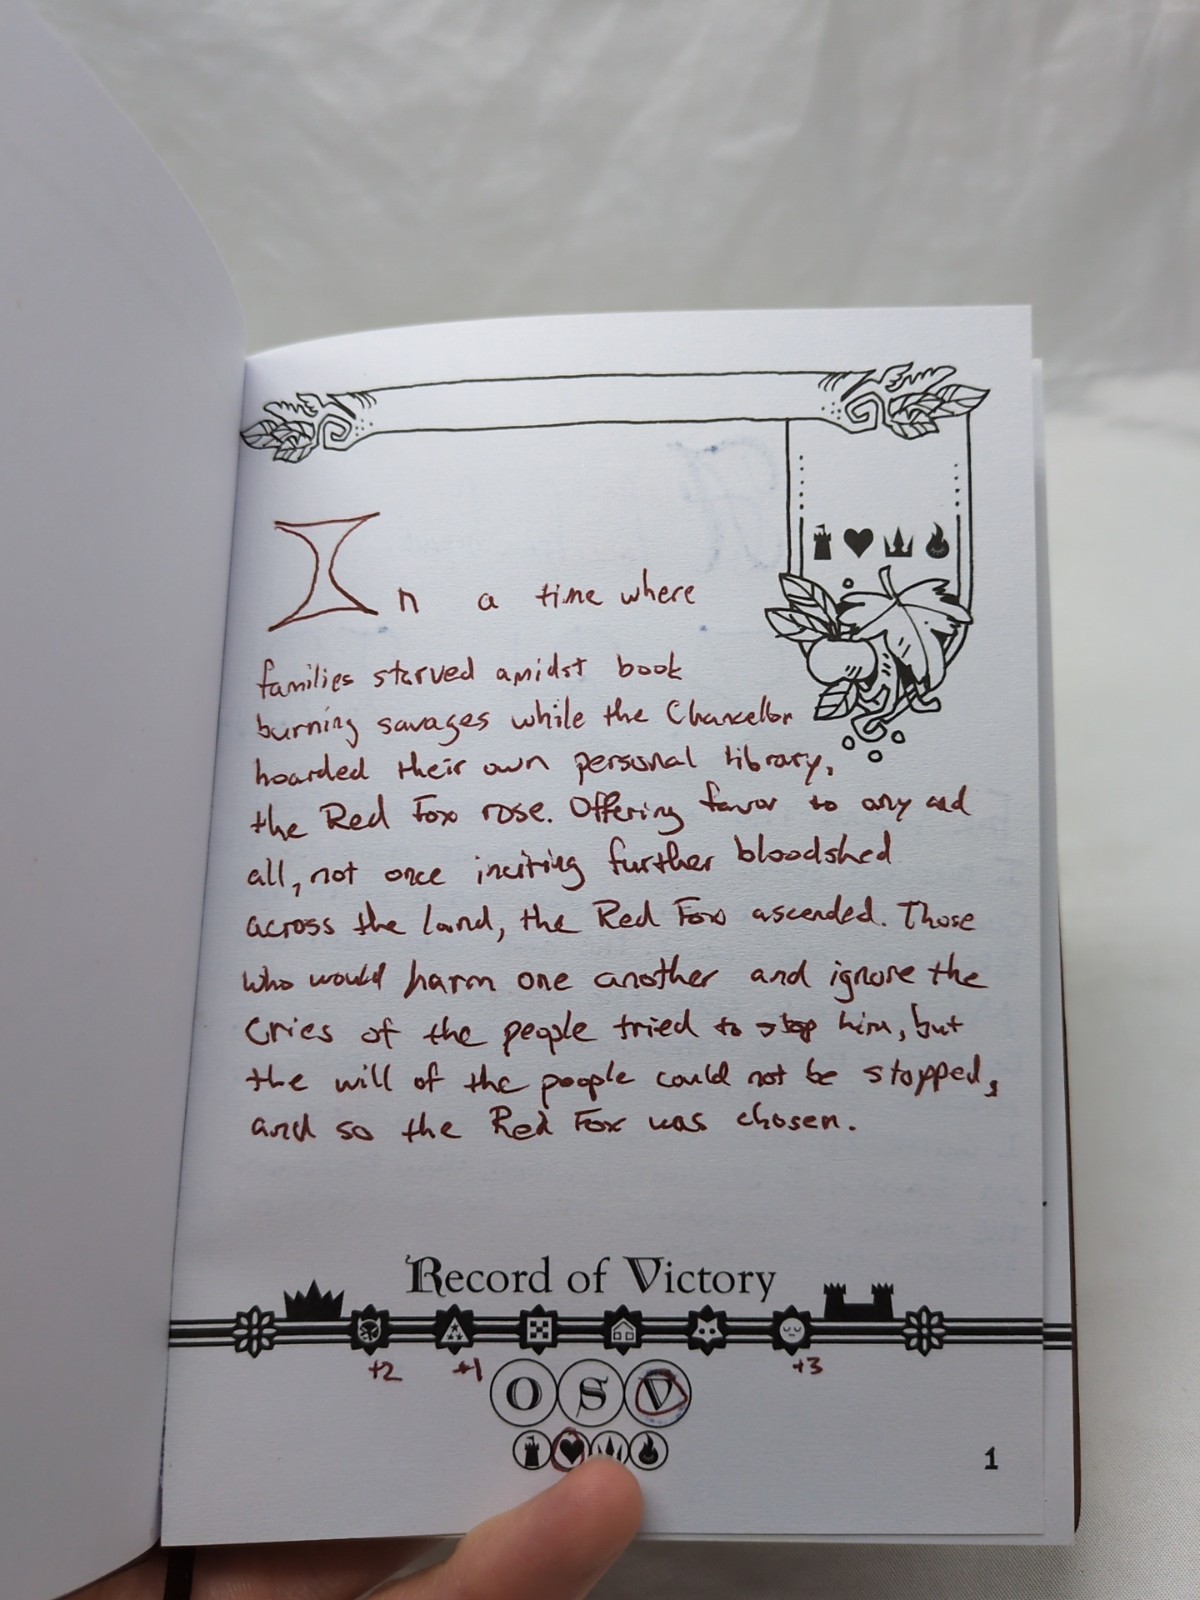 In a time where
families starved amidst book
burning savages while the Chancellor
hoarded their own personal library,
the Red Fox rose. Offering favor to any and
all, not once inciting further bloodshed
across the land, the Red Fox ascended. Those
who would harm one another and ignore the
cries of the people tried to stop him, but
the will of the people could not be stopped,
and so the Red Fox was chosen.
Record of Victory
+2 +1 +3
O S V
1